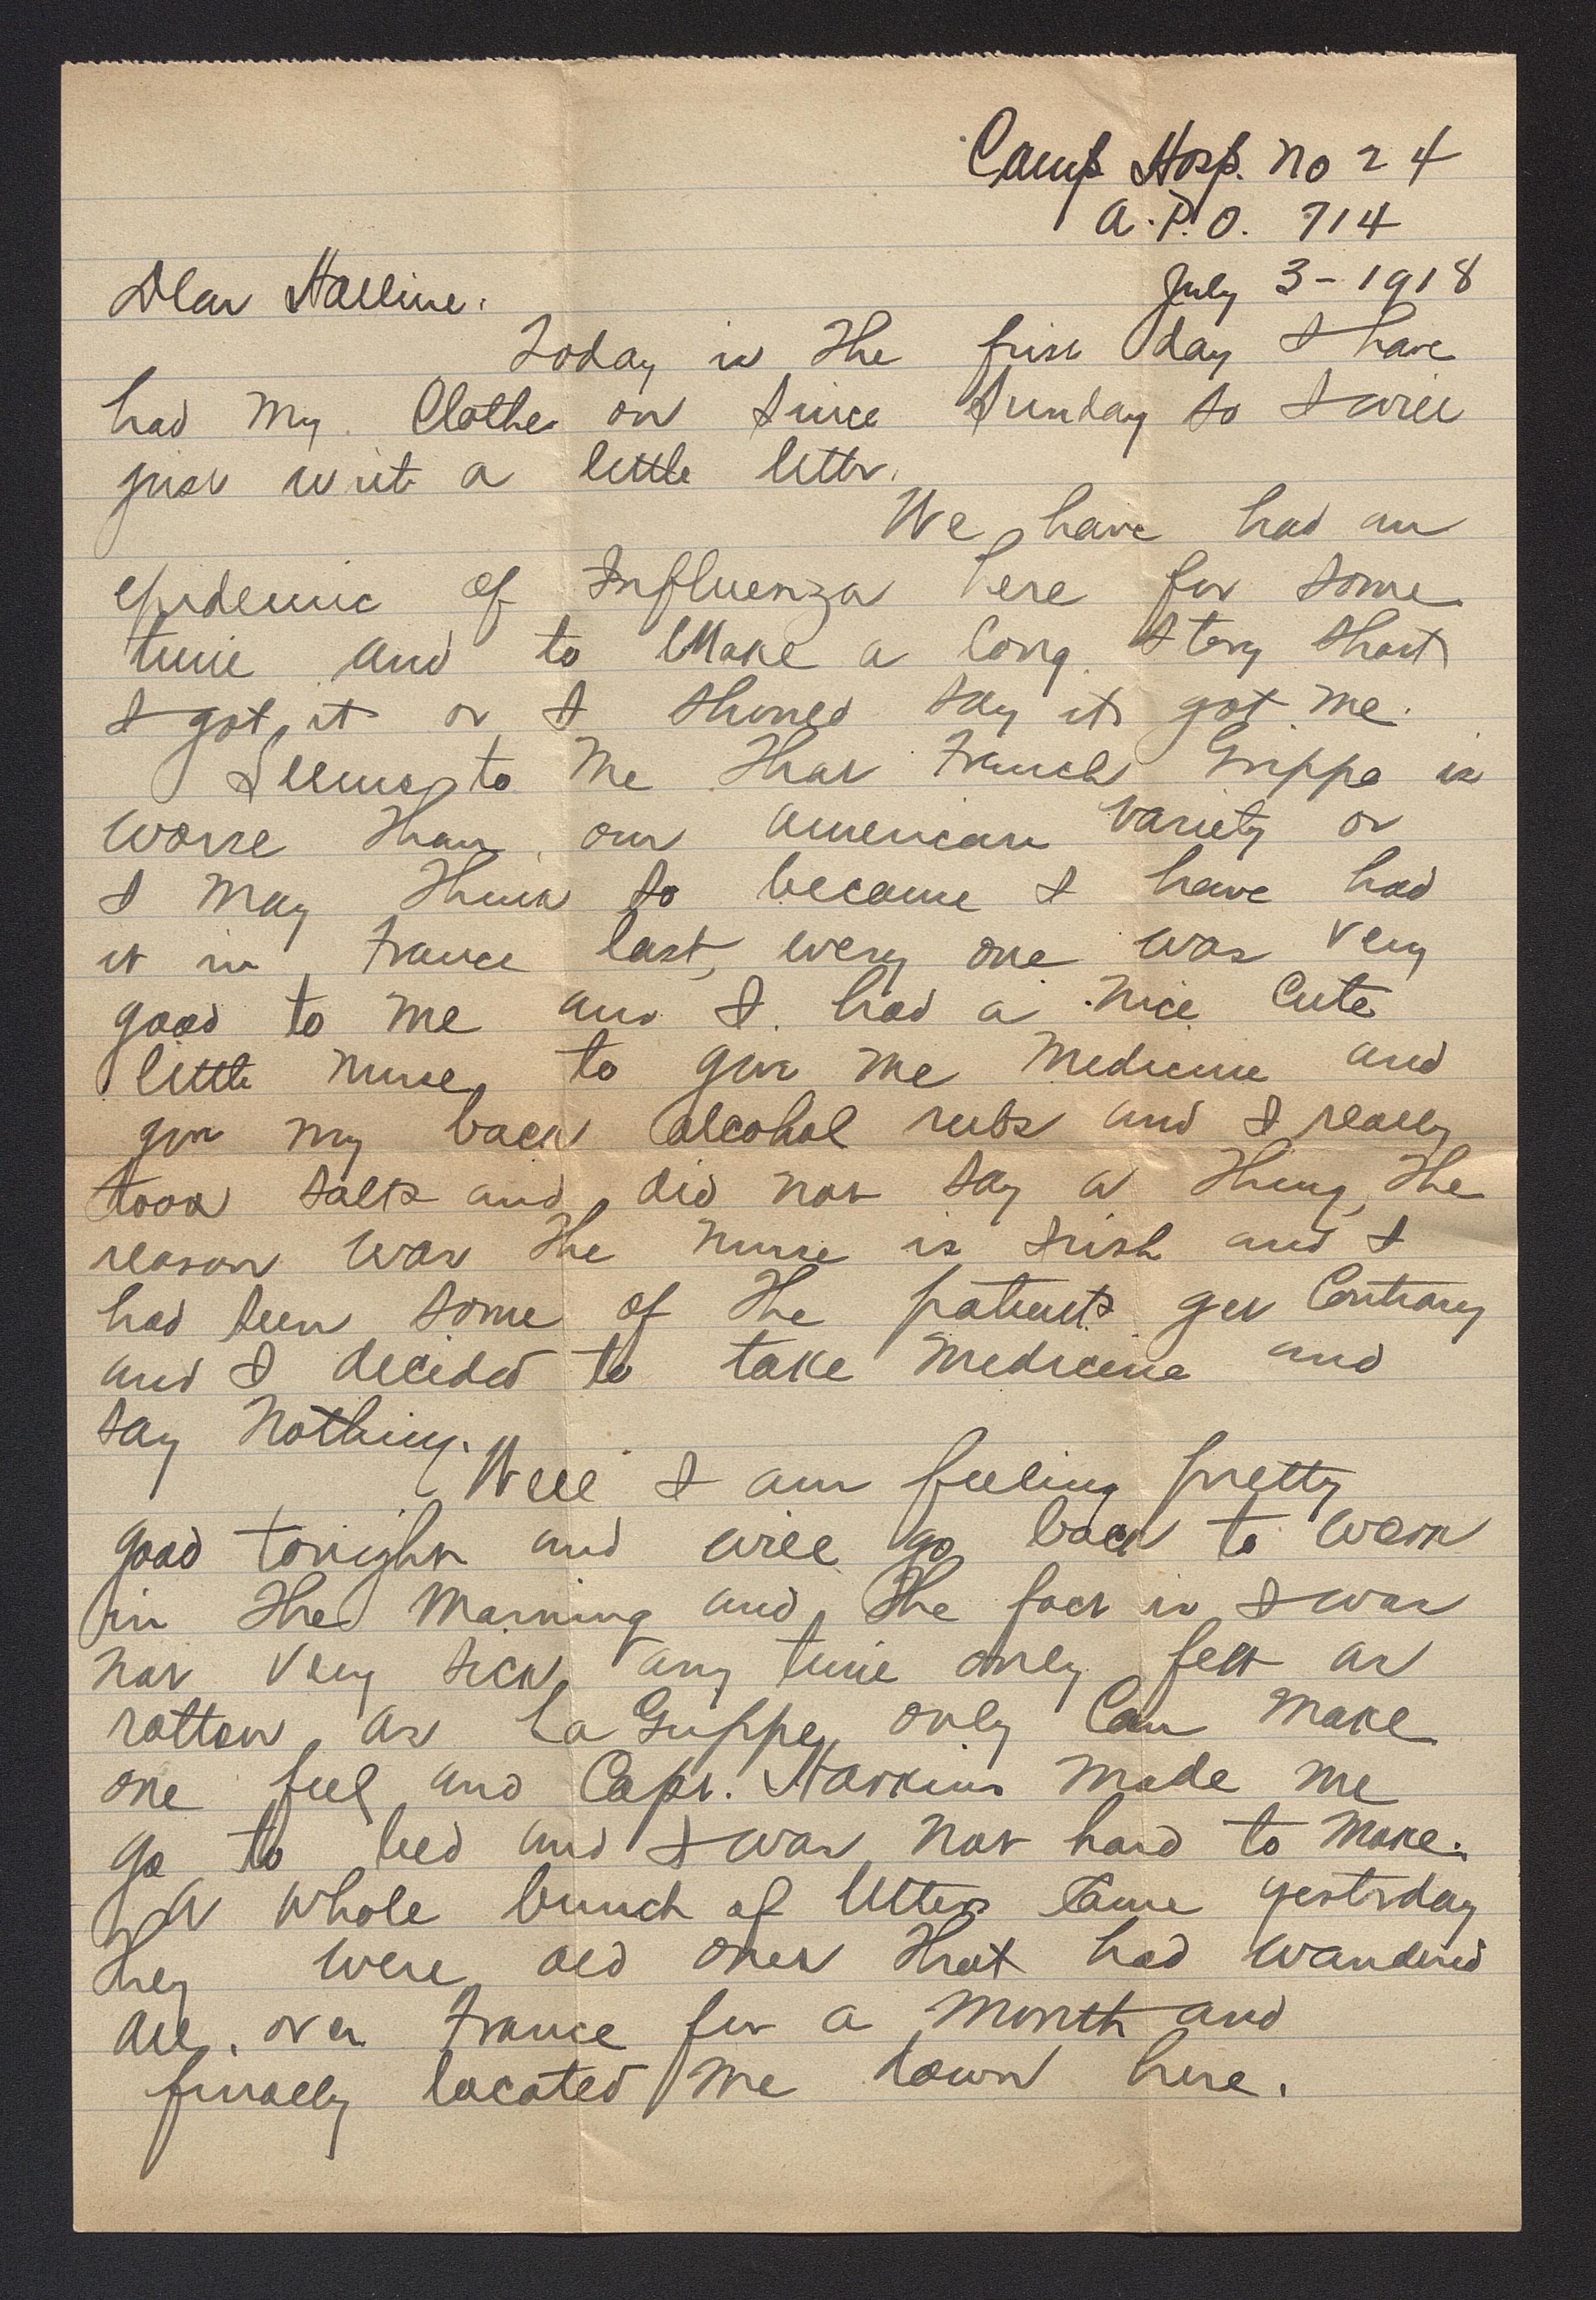 Camp Hosp. No 24
A.P.O. 714
July 3 - 1918
Dear Halline.
Today is the first day I have
had my clothes on since Sunday so I will
just write a little letter.
We have had an
epidemic of Influenza here for some
time and to make a long story short
I got it or I should say it got me.
Seems to me that French Grippe is
worse than our American variety or
I may think so because I have had
it in France last, every one was very
good to me and I had a nice cute
little nurse to give me medicine and
give my back alcohol rubs and I really
took salts and did not say a thing, the
reason was the nurse is Irish and I
had seen some of the patients get contrary
and I decided to take medicine and
say nothing.
Well I am feeling pretty
good tonight and will go back to work
in the morning and the fact is I was
not very sick any time only felt as
rotten as La Grippe only can make
one feel and Capt. Harkins made me
go to bed and I was not hard to make.
A whole bunch of letters came yesterday
they were old ones that had wandered
all over France for a month and
finally located me down here.